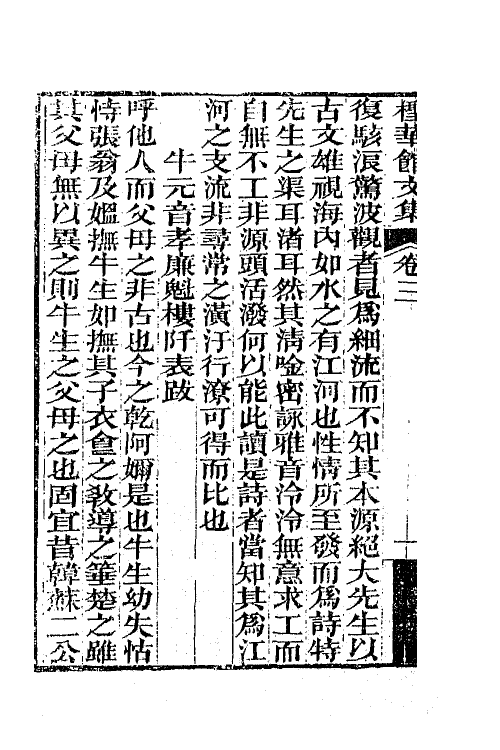 檉華館文集 卷三
復駭浪驚波觀者見爲細流而不知其本源絕大先生以
古文雄視海內如水之有江河也性情所至發而爲詩特
先生之渠耳渚耳然其清唫密詠雅音泠泠無意求工而
自無不工非源頭活潑何以能此讀是詩者當知其爲江
河之支流非尋常之潢汙行潦可得而比也
牛元音孝廉魁樓阡表跋
呼他人而父母之非古也今之乾阿嬭是也牛生幼失怙
恃張翁及媼撫牛生如撫其子衣食之敎導之箠楚之雖
其父母無以異之則牛生之父母之也固宜昔韓蘇二公